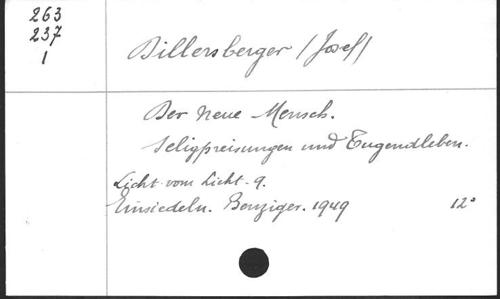 263
237
1
Dillersberger /Josef/
Der neue Mensch.
Seligpreisungen und Tugendleben.
Licht vom Licht. 9.
Einsiedeln. Benziger. 1949 12°